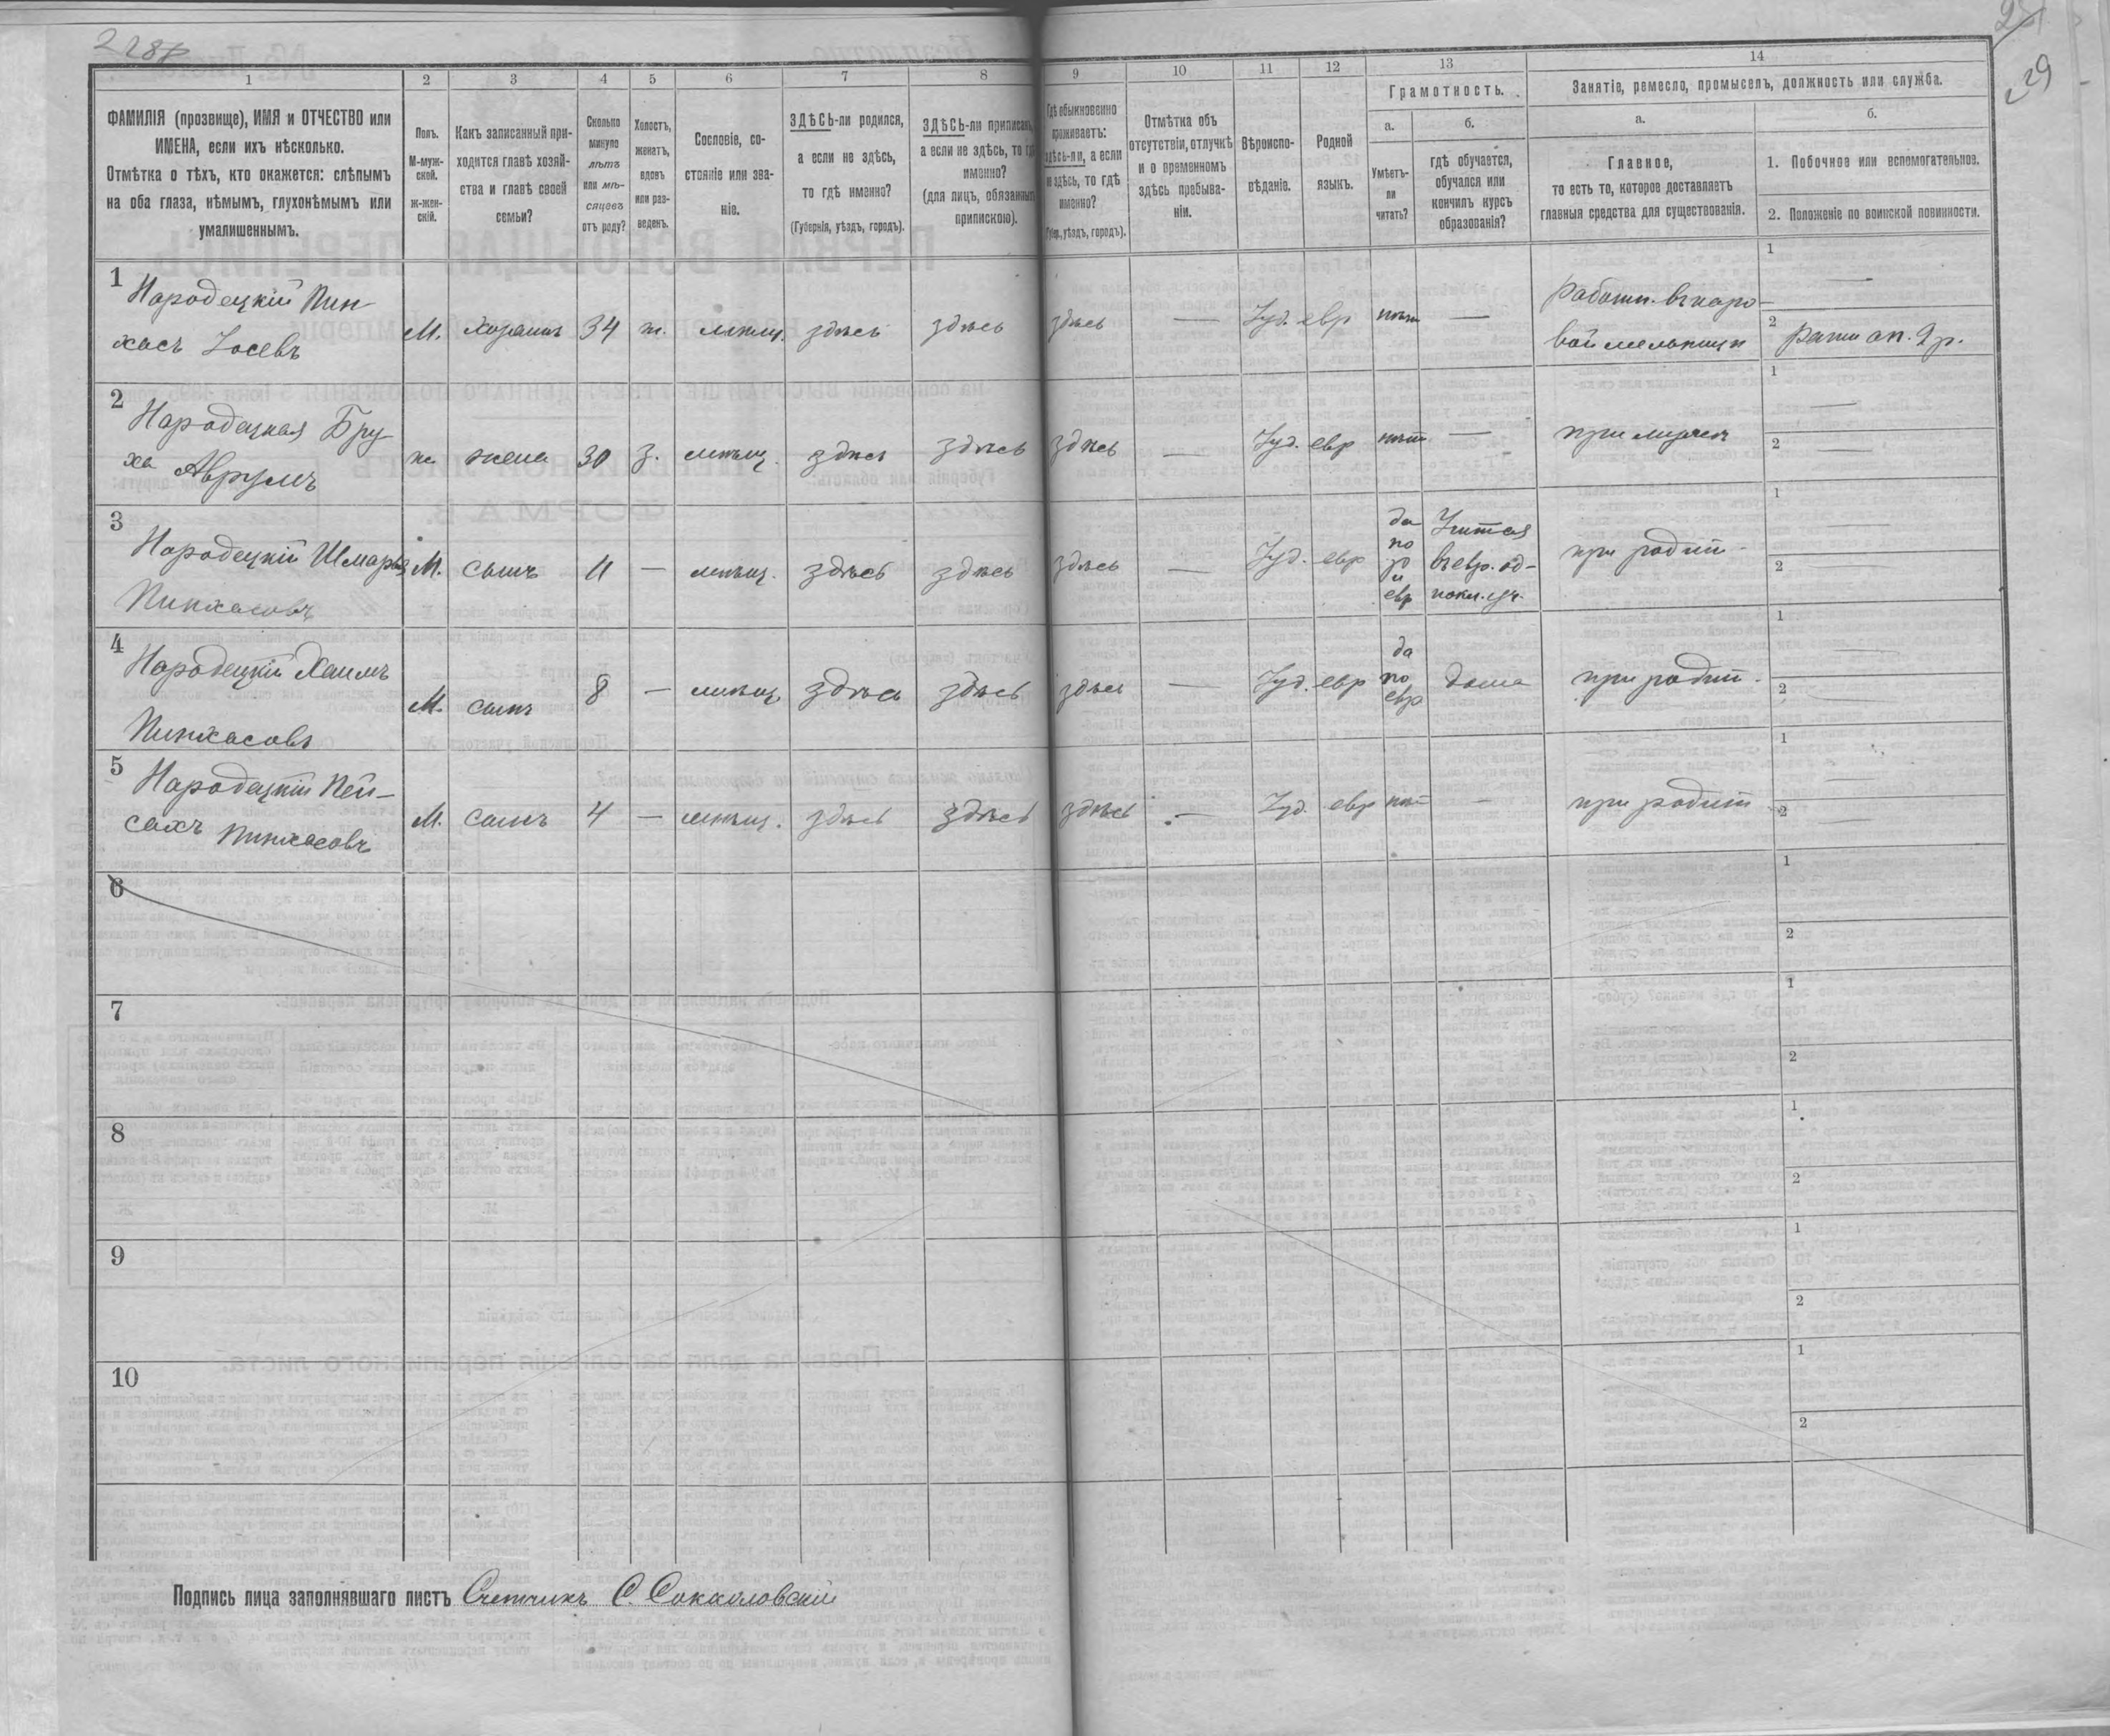 228
29
1 2 3 4 5 6 7 8 9 10 11 12 13 14
ФАМИЛІЯ (прозвище), ИМЯ и ОТЧЕСТВО или
ИМЕНА, если ихъ нѣсколько.
Отмѣтка о тѣхъ, кто окажется: слѣпымъ
на оба глаза, нѣмымъ, глухонѣмымъ или
умалишеннымъ.
Полъ.
М-муж-
ской.
ж-жен-
скій.
Какъ записанный при-
ходится главѣ хозяй-
ства и главѣ своей
семьи?
Сколько
минуло
лѣтъ
или мѣ-
сяцевъ
отъ роду?
Холостъ,
женатъ,
вдовъ
или раз-
веденъ.
Сословіе, со-
стояніе или зва-
ніе.
ЗДѢСЬ-ли родился,
а если не здѣсь,
то гдѣ именно?
(Губернія, уѣздъ, городъ).
ЗДѢСЬ-ли приписанъ,
а если не здѣсь, то гдѣ
именно?
(для лицъ, обязанныхъ
припискою).
Гдѣ обыкновенно
проживаетъ:
здѣсь-ли, а если
не здѣсь, то гдѣ
именно?
(Губер., уѣздъ, городъ).
Отмѣтка объ
отсутствіи, отлучкѣ
и о временномъ
здѣсь пребыва-
ніи.
Вѣроиспо-
вѣданіе.
Родной
языкъ.
Грамотность.
а.
Умѣетъ-
ли
читать?
б.
гдѣ обучается,
обучался или
кончилъ курсъ
образованія?
Занятіе, ремесло, промыселъ, должность или служба.
а.
Главное,
то есть то, которое доставляетъ
главныя средства для существованія.
б.
1. Побочное или вспомогательное.
2. Положеніе по воинской повинности.
1 Народецкій Пин-
хасъ Іосевъ
М. хозяинъ 34 ж. мѣщ. здѣсь здѣсь здѣсь — Іуд. евр нѣт —
работн. въ паро-
вой мельницѣ
1 —
2 Ратн оп. 2 р.
2 Народецкая Бру-
ха Аврумъ
ж. жена 30 з. мѣщ. здѣсь здѣсь здѣсь — Іуд. евр нѣт — при мужѣ
1 —
2 —
3 Народецкій Шмарья
Пинхасовъ
М. сынъ 11 — мѣщ. здѣсь здѣсь здѣсь — Іуд. евр
да
по
р
и
евр
Учится
въ евр. од-
нокл. уч.
при родит.
1
2
4 Народецкій Хаимъ
Пинхасовъ
М. сынъ 8 — мѣщ. здѣсь здѣсь здѣсь — Іуд. евр
да
по
евр
дома при родит.
1 —
2 —
5 Народецкій Пей-
сахъ Пинхасовъ
М. сынъ 4 — мѣщ. здѣсь здѣсь здѣсь — Іуд. евр нѣт — при родит
1 —
2 —
6
1
2
7
1
2
8
1
2
9
1
2
10
1
2
Подпись лица заполнявшаго листъ Счетчикъ С. Сокколовскій